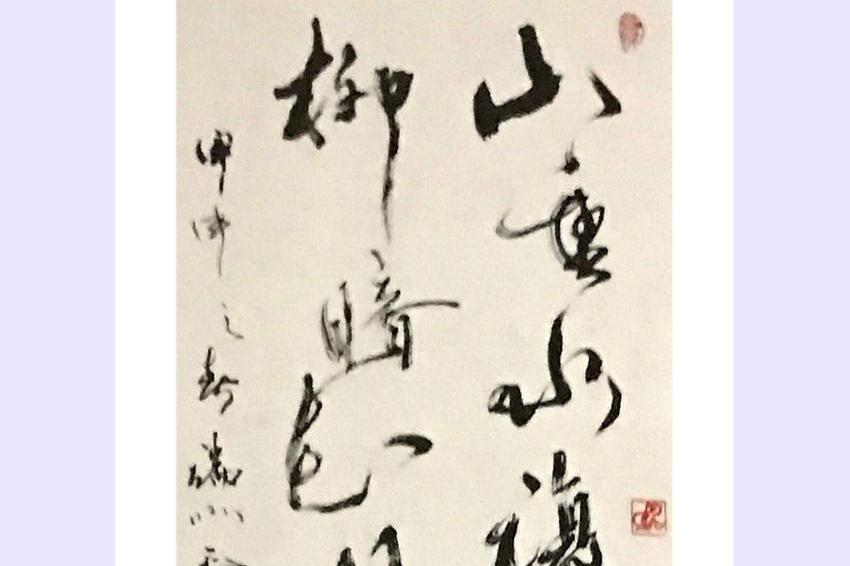 山重水複
柳暗花明
甲申之春